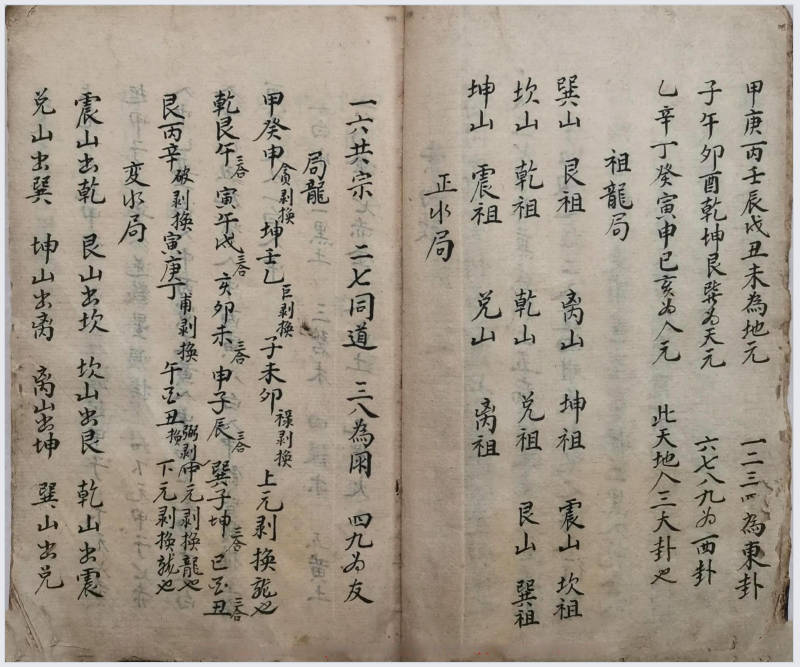 甲庚丙壬辰戌丑未為地元 一二三四為東卦
子午卯酉乾坤艮巽为天元 六七八九为西卦
乙辛丁癸寅申巳亥为人元 此天地人三大卦也
祖龍局
巽山 艮祖 离山 坤祖 震山 坎祖
坎山 乾祖 乾山 兑祖 艮山 巽祖
坤山 震祖 兑山 离祖
正水局
一六共宗 二七同道 三八為朋 四九为友
局龍
甲癸申 貪剥換 坤壬乙 巨剥換 子未卯 祿剥換 上元剥換龍也
乾艮午 三合 寅午戌 三合 亥卯未 三合 申子辰 三合 巽子坤 三合 巳酉丑 三合
艮丙辛 破剥換 寅庚丁 甫剥換 午酉丑 弼剥換 中元剥換龍也 下元剥換龍也
变水局
震山出乾 艮山出坎 坎山出艮 乾山出震
兑山出巽 坤山出离 离山出坤 巽山出兑